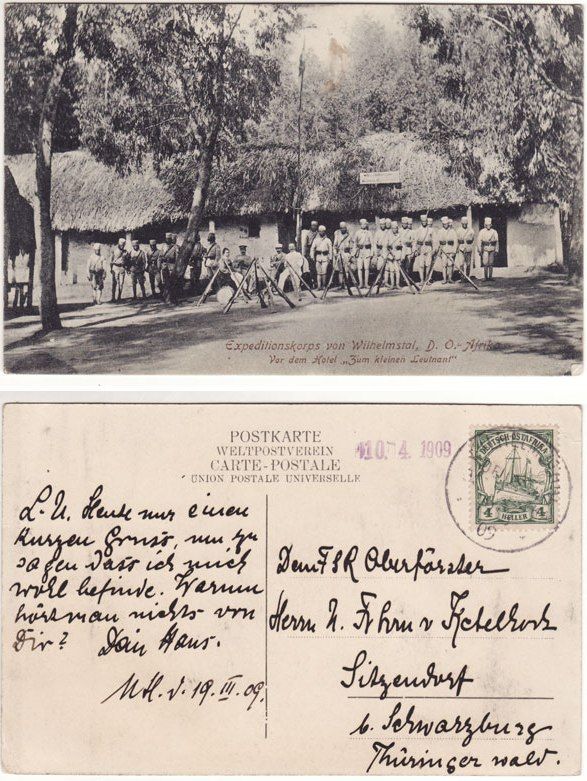 Expeditionskorps von Wilhelmstal, D. O.-Afrika
Vor dem Hotel „Zum kleinen Leutnant“
POSTKARTE
WELTPOSTVEREIN
CARTE-POSTALE
UNION POSTALE UNIVERSELLE
10. 4. 1909
DEUTSCH-OSTAFRIKA
4 4
HELLER
09
L. U. Heute nur einen
kurzen Gruss, um zu
sagen dass ich mich
wohl befinde. Warum
hört man nichts von
Dir? Dein Hans.
19. III. 09.
Dem Oberförster
Herrn U. Frhrn v Ketelhodt
Sitzendorf
b. Schwarzburg
Thüringer wald.